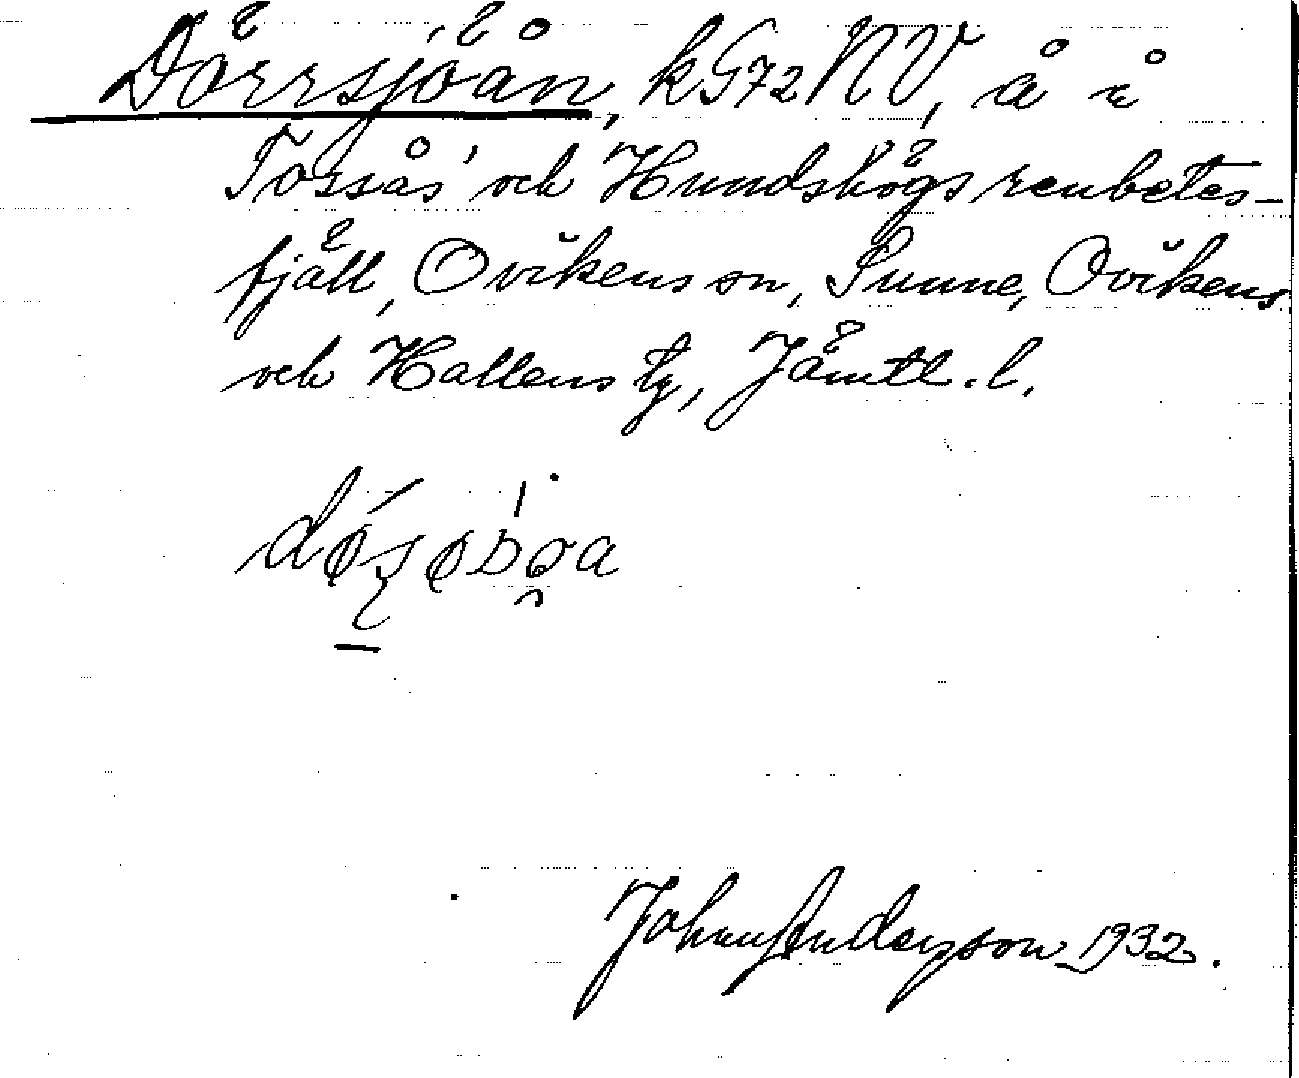 Dörrsjöån, kG72NV, å i
Tossås och Hundshögs renbetes-
fjäll, Ovikens sn, Sunne, Ovikens
och Hallens tg, Jämtl. l.
John Andersson 1932.